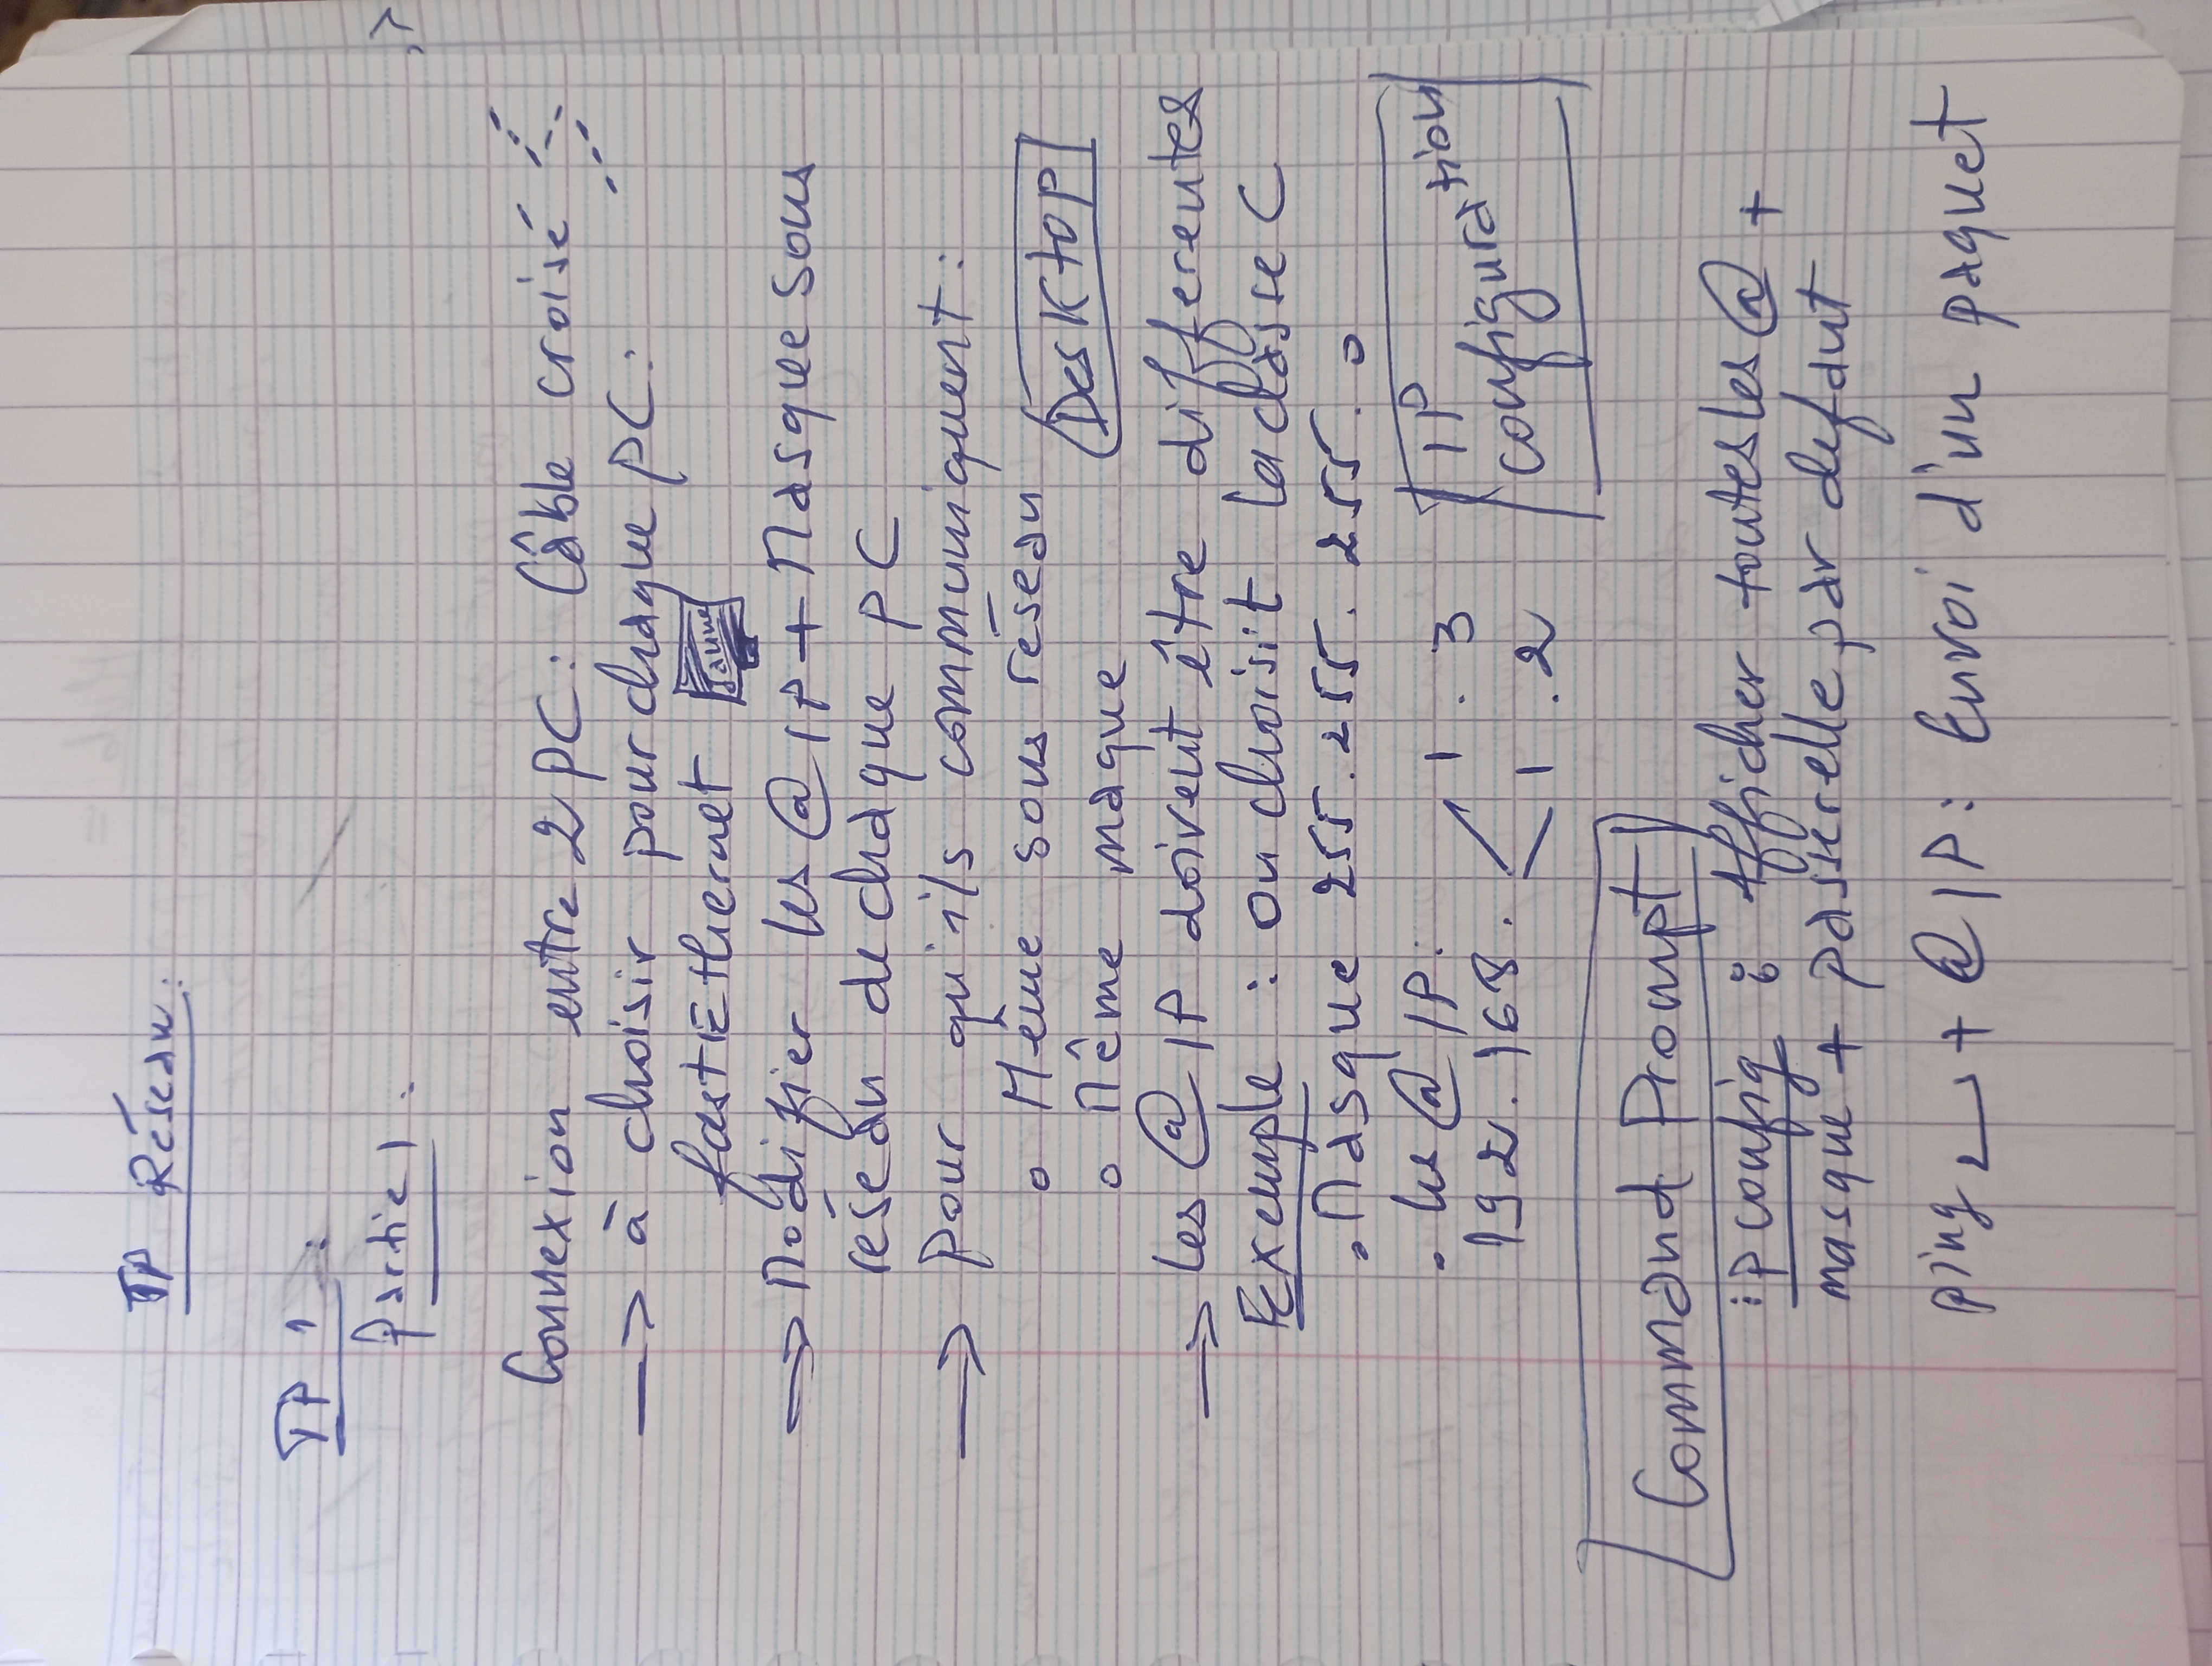 TP Réseau :
TP 1 :
Partie 1 :
Connexion entre 2 PC : Câble croisé
→ à choisir pour chaque PC :
fastEthernet Jaune
⇒ Modifier les @ IP + Masque sous
réseau de chaque PC
→ Pour qu'ils communiquent :
o Même sous réseau
Desktop
o Même maque
→ les @ IP doivent être differentes
Exemple : on choisit la classe C
. Masque 255.255.255.0
. les @ IP :
192.168. < 1 . 3
1 . 2
IP
configuration
Command Prompt
ipconfig : Afficher toutes les @ +
masque + passerelle par defaut
ping ⎵ + @ IP : Envoi d'un paquet